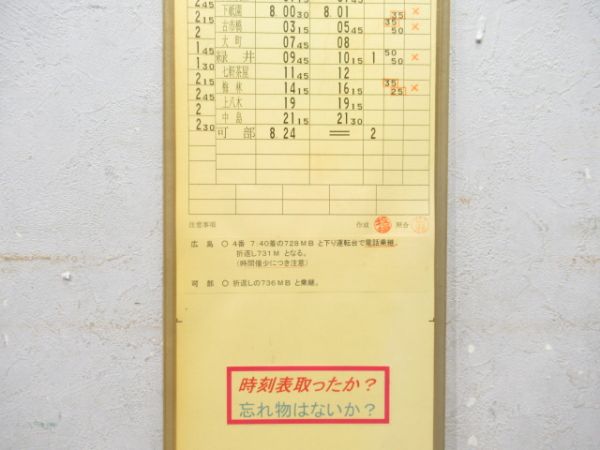 2 45 下祇園 8.00 30 8.01 35 ×
2 15 古市橋 03 15 05 45 35 50 ×
2 大町 07 45 08
1 45 緑井 09 45 10 15 1 50 50 ×
1 30 七軒茶屋 11 45 12
2 15 梅林 14 15 16 15 35 25 ×
2 45 上八木 19 19 15
2 中島 21 15 21 30
2 30 可部 8.24 ＝ 2
注意事項 作成 照合
広島 ○ 4番 7:40着の728MB と下り運転台で電話乗継。
折返し731M となる。
(時間僅少につき注意)
可部 ○ 折返しの736MB と乗継。
時刻表取ったか？
忘れ物はないか？